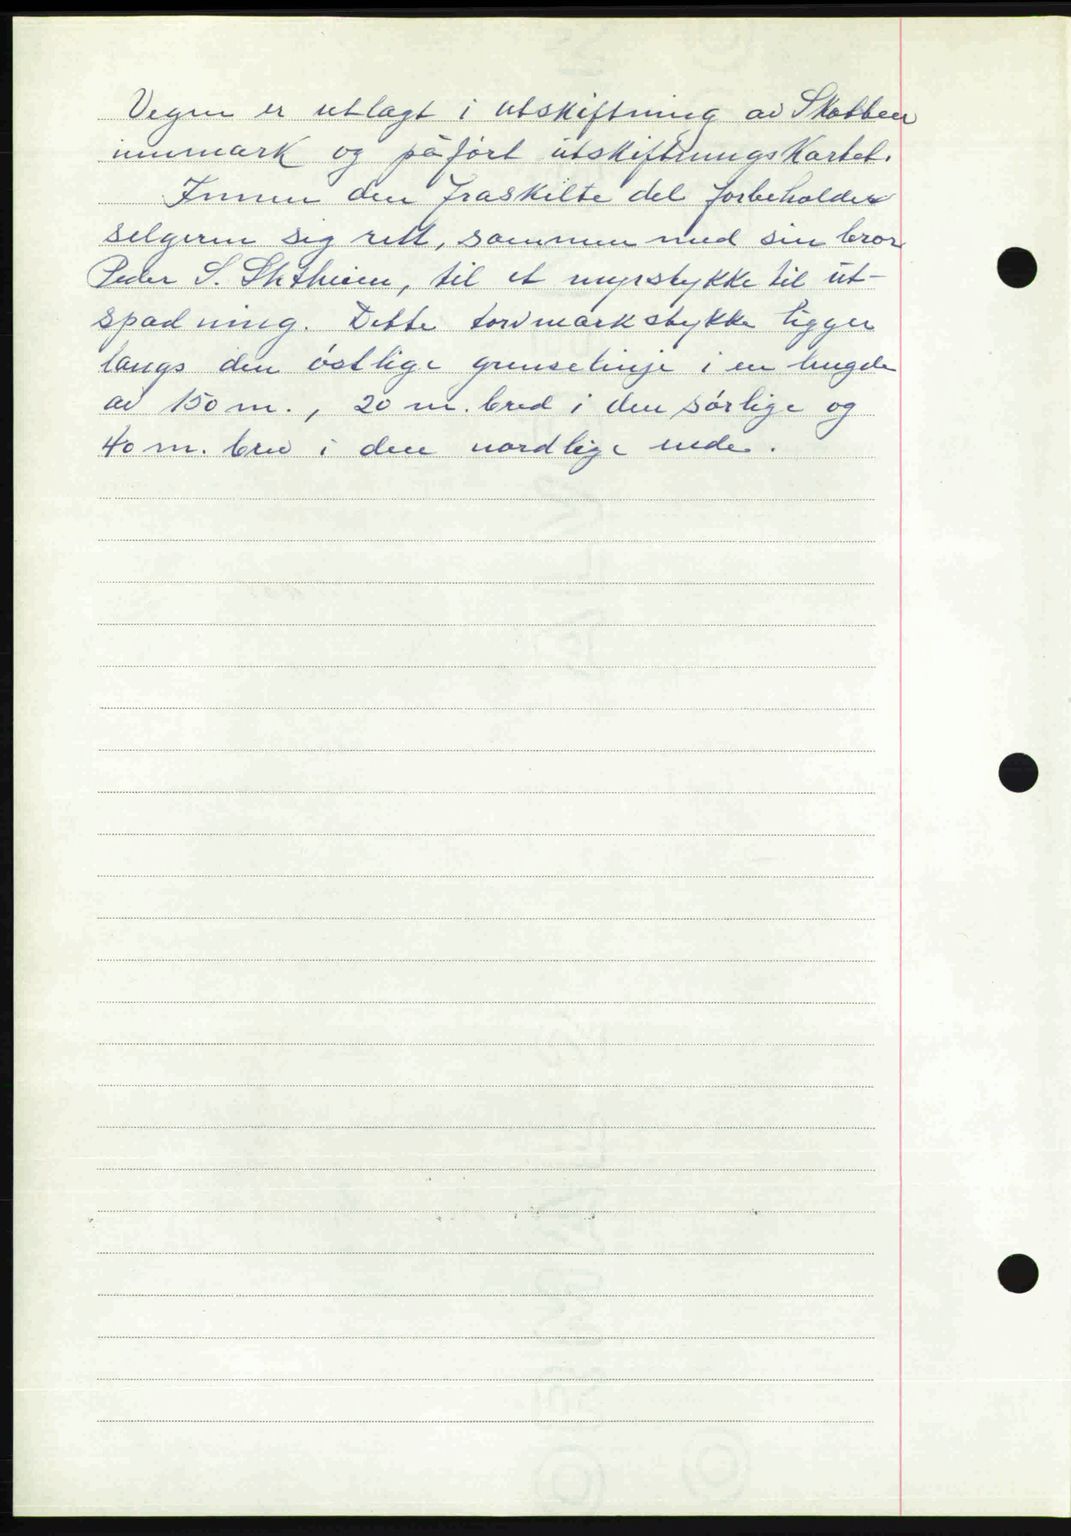 Vegen er utlagt i utskiftning av Skobben
innmark og påført utskiftningskartet.
Innen den fraskilte del forbeholder
selgeren sig rett, sammen med sin bror
Peder S. til et myrstykke til ut-
spadning. Dette torvmarkstykke ligger
langs den østlige grenselinje i en lengde
av 150 m., 20 m. bred i den sørlige og
40 m. brei i den nordlige ende.